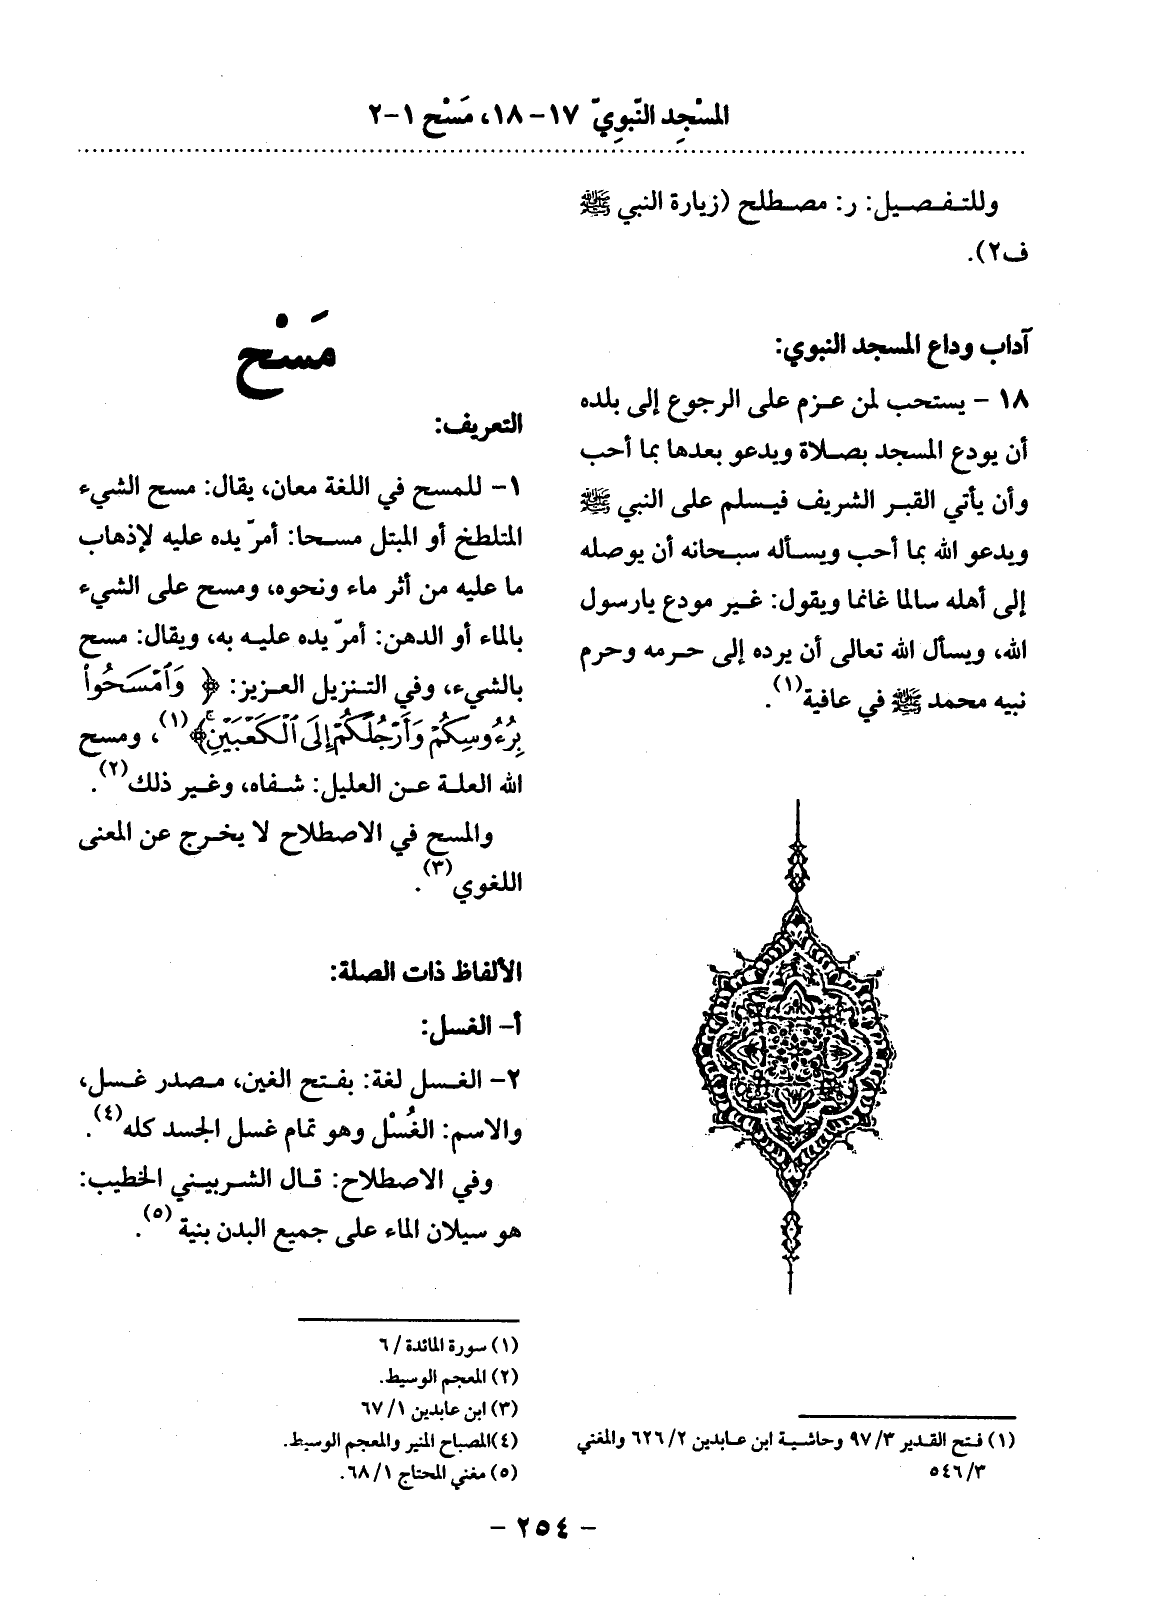 المسْجِد النّبوِيّ ١٧- ١٨، مَسْح ١-٢
وللتـفـصـيل: ر: مصـطلح (زيارة النبي ﷺ
ف٢).
آداب وداع المسجد النبوي:
١٨ - يستحب لمن عـزم على الرجوع إلى بلده
أن يودع المسجد بصـلاة ويدعو بعدها بما أحب
وأن يأتي القبـر الشريف فيـسلم على النبي ﷺ
ويدعو الله بما أحب ويسـأله سبـحانه أن يوصله
إلى أهله سالما غانما ويقول: غيـر مودع يارسول
الله، ويسأل الله تعالى أن يرده إلى حـرمه وحرم
نبيه محمد ﷺ في عافية(١).
(١) فـتح القـدير ٣/ ٩٧ وحاشيـة ابن عـابدين ٢/ ٦٢٦ والمغني
٣/ ٥٤٦
مَسْح
التعريف:
١- للمسح في اللغة معان، يقال: مسح الشيء
المتلطخ أو المبتل مسـحا: أمرّ يده عليه لإذهاب
ما عليه من أثر ماء ونحوه، ومسح على الشيء
بالماء أو الدهن: أمرّ يده عليـه به، ويقال: مسح
بالشيء، وفي التـنزيل العـزيز: ﴿ وَٱمْسَحُوا۟
بِرُءُوسِكُمْ وَأَرْجُلَكُمْ إِلَى ٱلْكَعْبَيْنِۚ﴾(١)، ومسح
الله العلـة عـن العليل: شـفاه، وغـير ذلك(٢).
والمسح في الاصطلاح لا يخـرج عن المعنى
اللغوي(٣).
الألفاظ ذات الصلة:
أ- الغسل:
٢- الغـسل لغة: بفـتح الغين، مـصدر غـسل،
والاسم: الغُسْل وهو تمام غسل الجسد كله(٤).
وفي الاصطلاح: قـال الشربيـني الخطيب:
هو سيلان الماء على جميع البدن بنية (٥).
(١) سورة المائدة/ ٦
(٢) المعجم الوسيط.
(٣) ابن عابدين ١/ ٦٧
(٤)المصباح المنير والمعجم الوسيط.
(٥) مغني المحتاج ١/ ٦٨.
- ٢٥٤ -